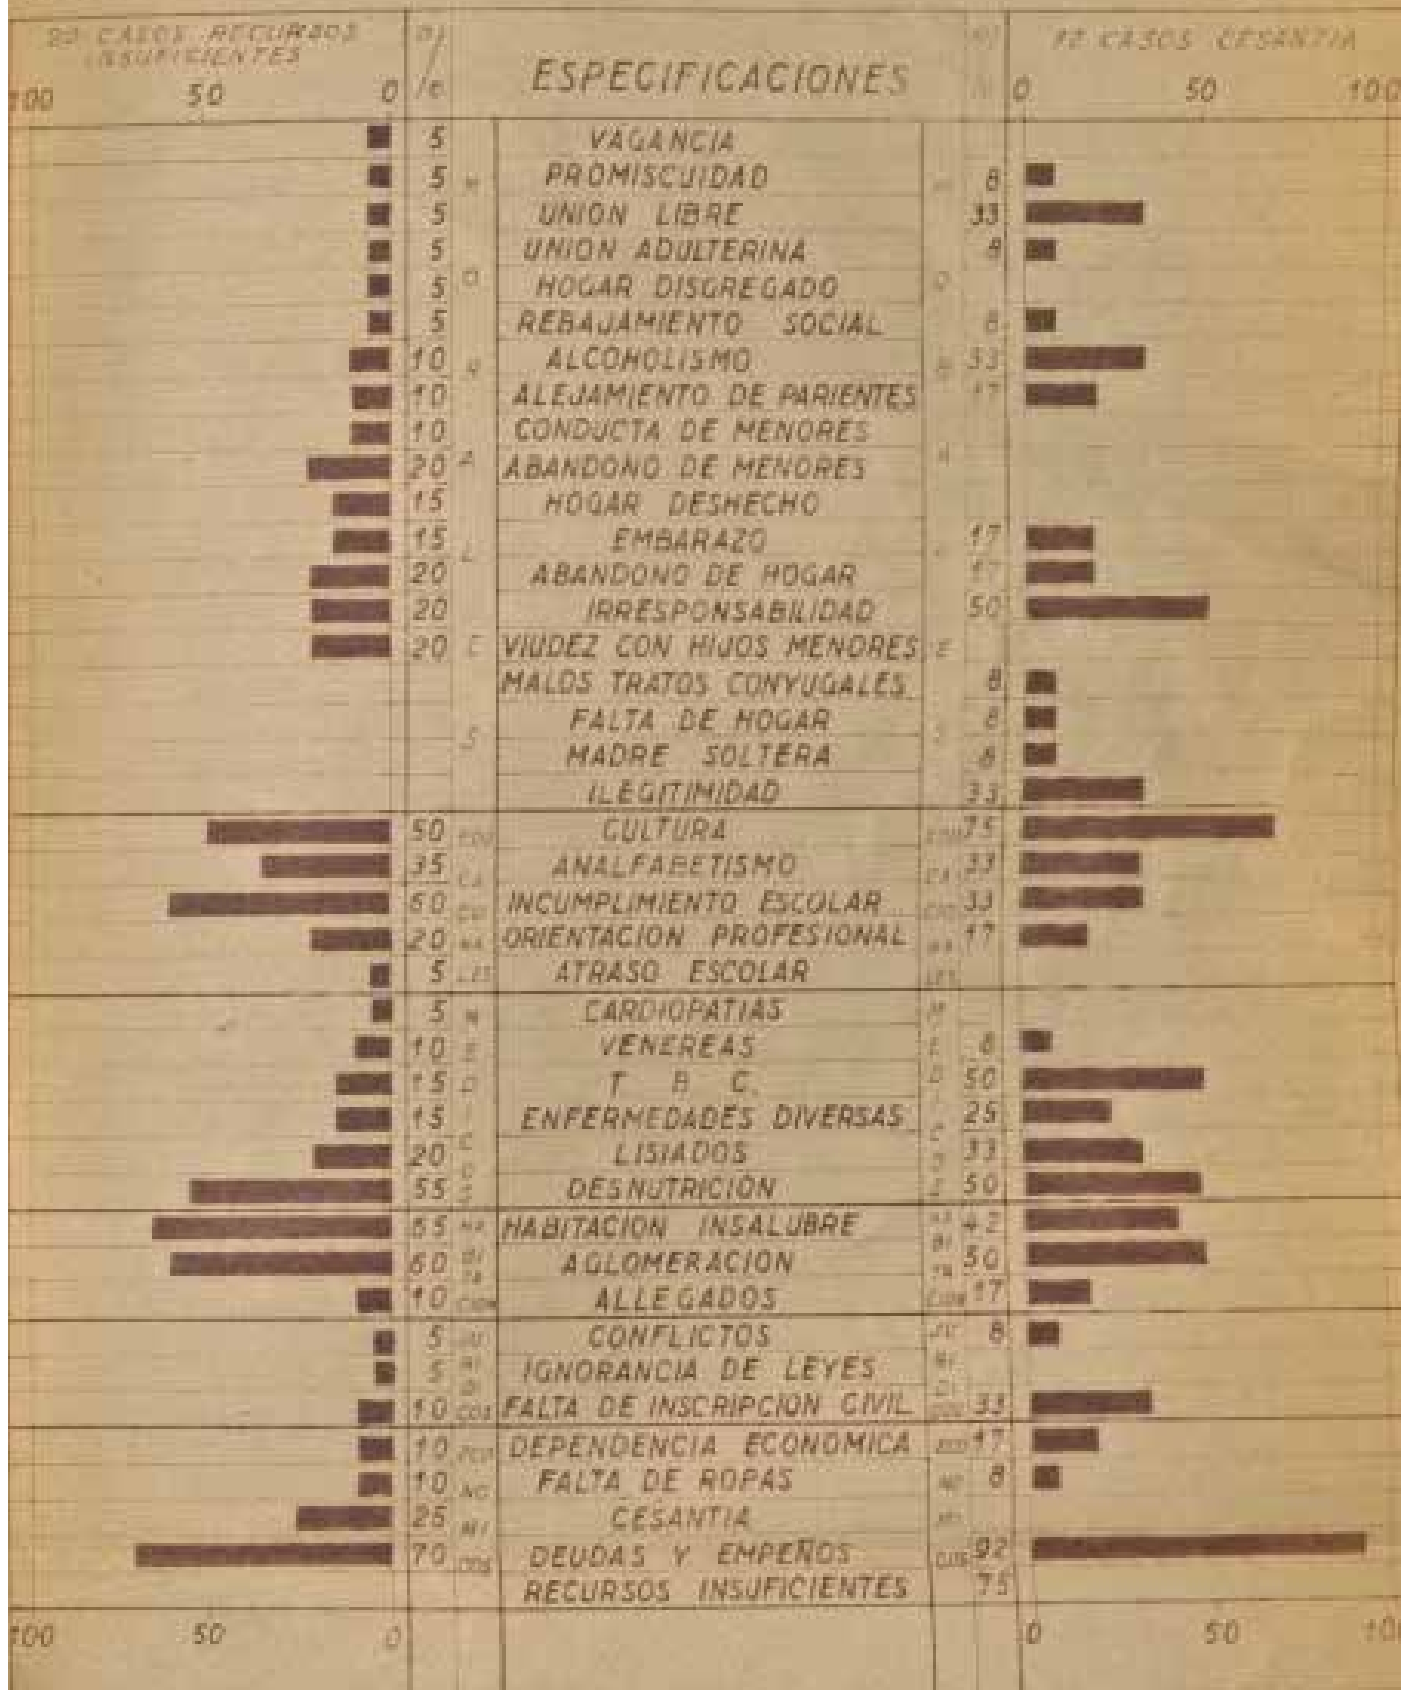 CASOS RECURSOS
INSUFICIENTES
100 50 0
%
ESPECIFICACIONES
12 CASOS CESANTIA
0 50 100
5 VAGANCIA
5 PROMISCUIDAD 8
5 UNION LIBRE 33
5 UNION ADULTERINA 8
5 HOGAR DISGREGADO
5 REBAJAMIENTO SOCIAL 8
10 ALCOHOLISMO 33
10 ALEJAMIENTO DE PARIENTES 17
10 CONDUCTA DE MENORES
20 ABANDONO DE MENORES
15 HOGAR DESHECHO
15 EMBARAZO 17
20 ABANDONO DE HOGAR 17
20 IRRESPONSABILIDAD 50
20 VIUDEZ CON HIJOS MENORES
MALOS TRATOS CONYUGALES 8
FALTA DE HOGAR 8
MADRE SOLTERA 8
ILEGITIMIDAD 33
50 EDU CULTURA EDU 75
35 CA ANALFABETISMO CA 33
60 CIO INCUMPLIMIENTO ESCOLAR CIO 33
20 NA ORIENTACION PROFESIONAL NA 17
5 LES ATRASO ESCOLAR LES
5 M CARDIOPATIAS M
10 E VENEREAS E 8
15 D T B C. D 50
15 I ENFERMEDADES DIVERSAS I 25
20 C LISIADOS C 33
55 DESNUTRICION 50
65 HA HABITACION INSALUBRE HA 42
60 BI TA AGLOMERACION BI TA 50
10 CION ALLEGADOS CION 17
5 JU CONFLICTOS JU 8
5 RI DI IGNORANCIA DE LEYES RI DI
10 COS FALTA DE INSCRIPCION CIVIL COS 33
10 ECO DEPENDENCIA ECONOMICA ECO 17
10 NO FALTA DE ROPAS NO 8
25 MI CESANTIA MI
70 COS DEUDAS Y EMPEÑOS COS 92
RECURSOS INSUFICIENTES 75
100 50 0 0 50 100